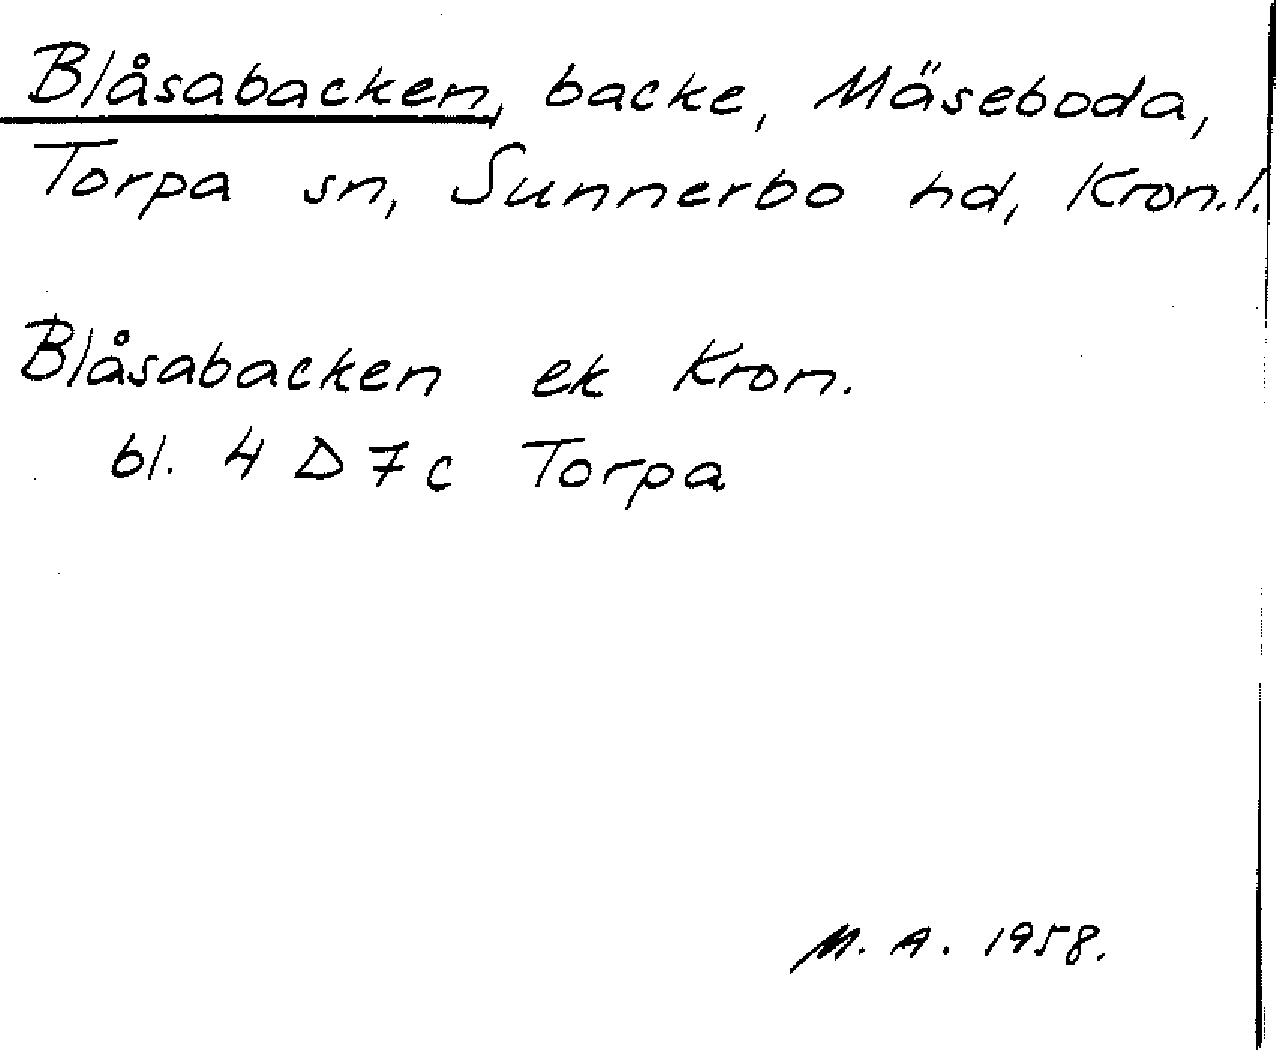 Blåsabacken, backe, Mäseboda,
Torpa sn, Sunnerbo hd, Kron.l.
Blåsabacken ek Kron.
bl. 4 D 7 c Torpa
M. A. 1958.